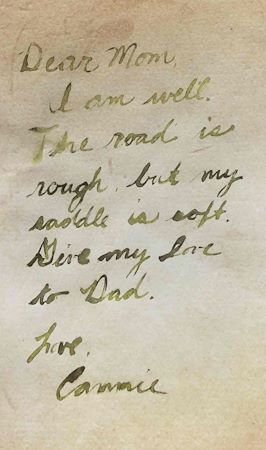 Dear Mom,
I am well.
The road is
rough, but my
saddle is soft.
Give my love
to Dad.
Love,
Cammie